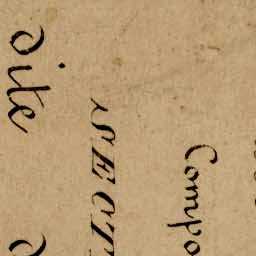 Compo
SECT
dite